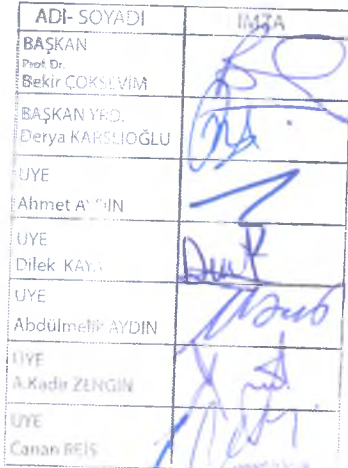 ADI- SOYADI İMZA
BAŞKAN
Prof. Dr.
Bekir ÇOKSEVİM
BAŞKAN YRD.
Derya KARSLIOĞLU
ÜYE
Ahmet AYDIN
ÜYE
Dilek KAYA
ÜYE
Abdülmelik AYDIN
ÜYE
A.Kadir ZENGİN
ÜYE
Canan REİS